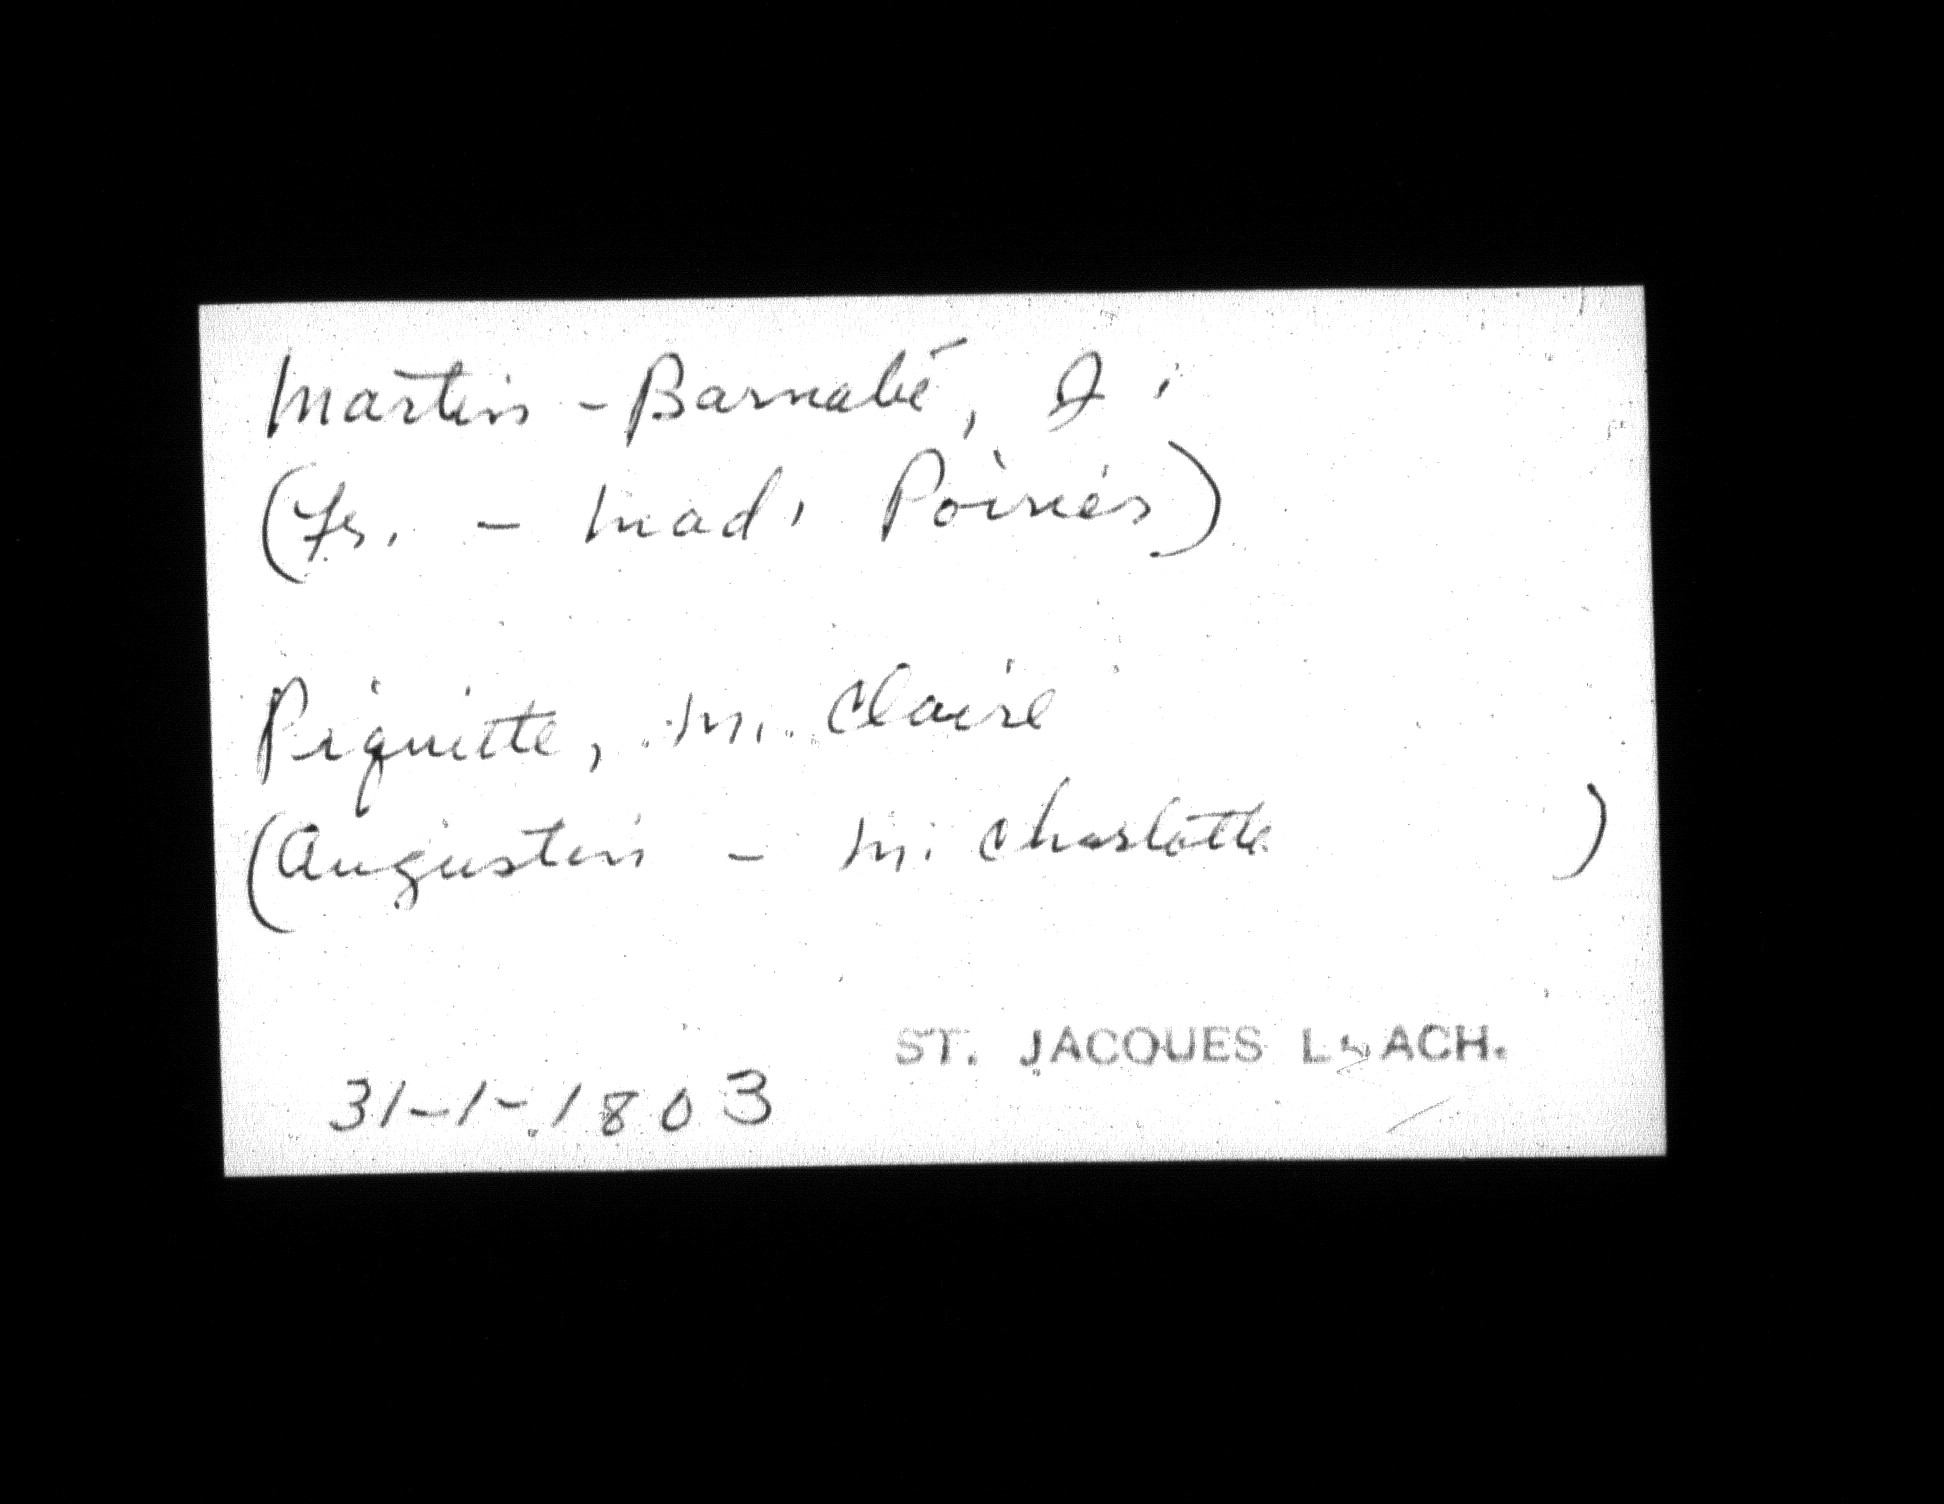 Martin - Barnabé, J.
(Fr. - Mad. Poirier)
Piquette, M. Claire
(Augustin - M. Charlotte )
ST. JACQUES L'ACH.
31-1-1803